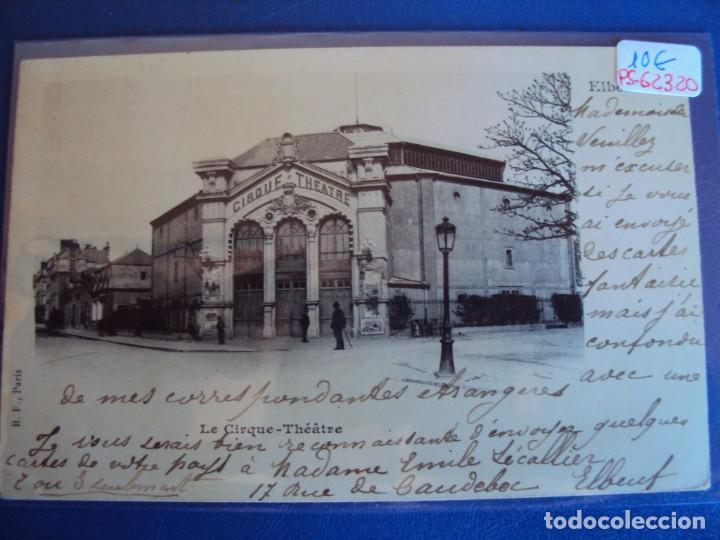 10€
PS-62320
Elbe
CIRQUE THEATRE
Mademoiselle
Veuillez
m'excuser
si Je vous
ai envoyé
des cartes
fantaisie
mais j'ai
confondu
avec une
de mes correspondantes étrangères
B. F., Paris
Le Cirque-Théâtre
Je vous serais bien reconnaissante d'envoyer quelques
cartes de votre pays à Madame Emile Lécallier
2 ou 3 seulement 17 Rue de Caudebec Elbeuf
todocoleccion.net